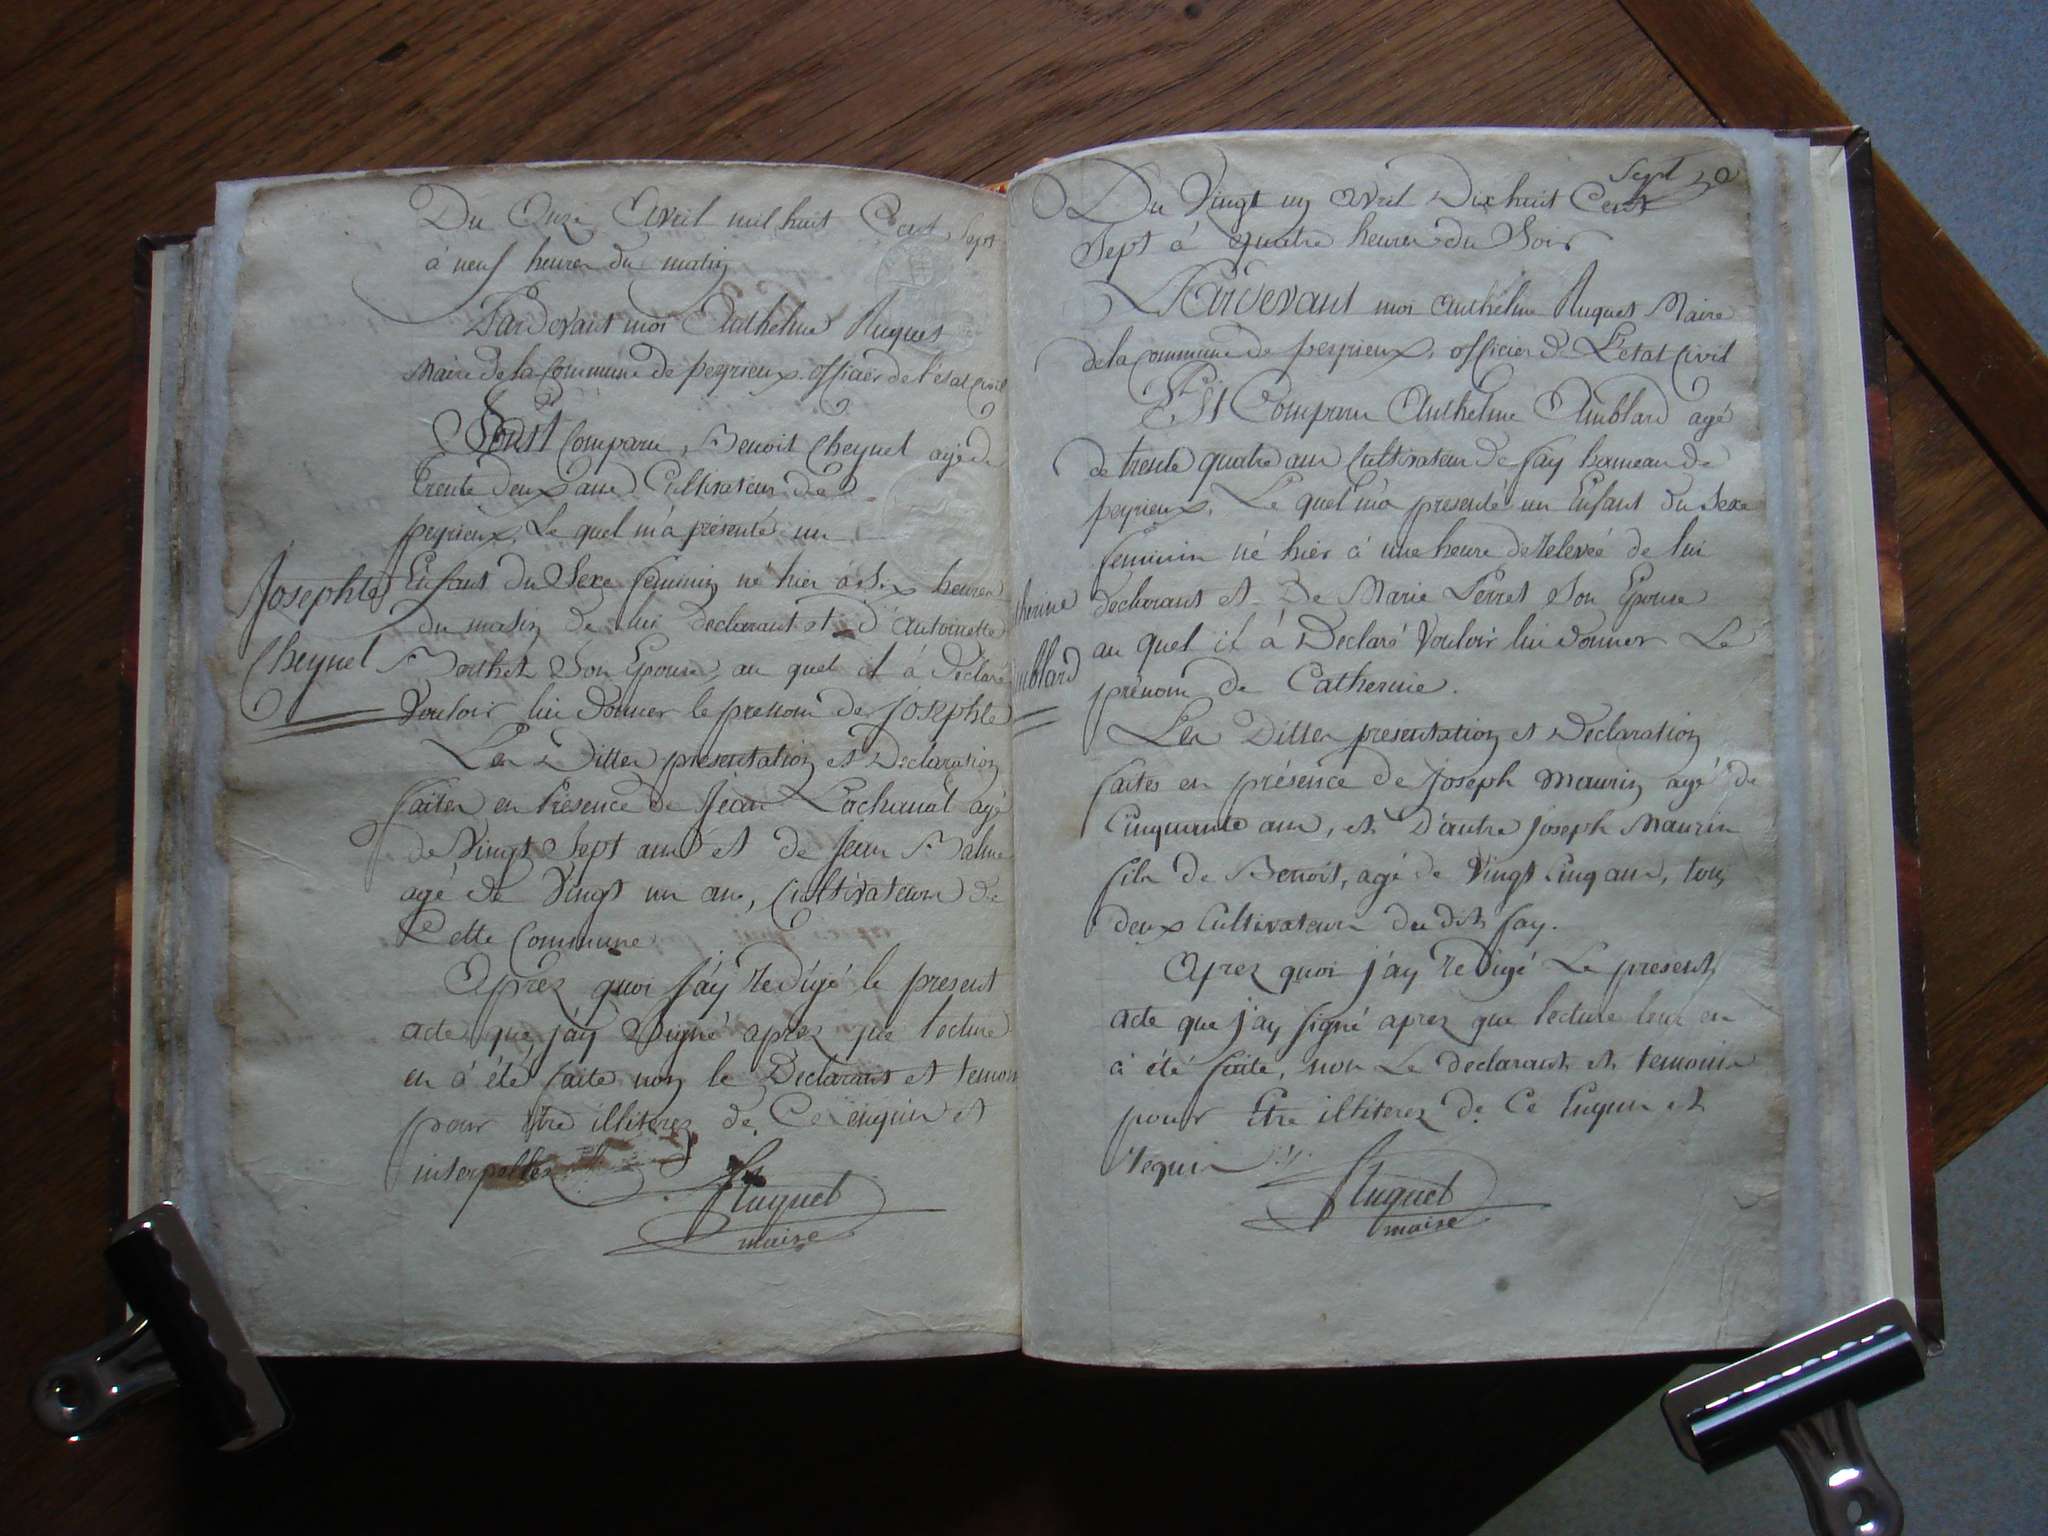 Du Onze Avril mil huit Cent Sept
à neuf heures du matin
Pardevant moi Anthelme Huguet
Maire de la Commune de peyrieux officier de l'etat Civil
Est Comparu, Benoit Cheynel agé de
trente deux ans Cultivateur de
peyrieux, Le quel m'a présenté un
Enfant du Sexe feminin né hier à Six heures
du matin de lui declarant et d'antoinette
Son Epouse, au quel il à Déclaré
Vouloir lui donner le prenom de josephte
Josephte
Cheynel
Les Dittes présentation et Declaration
faites en Présence de Jean Lachanal agé
de Vingt Sept ans et de Jean
agé de Vingt un ans, Cultivateurs de
Cette Commune
Aprez quoi j'ay redigé le present
acte que j'ay Signé aprez que lecture
en à été faite non le Declarant et temoins
pour etre illiterez de Ce enquis et
interpellez
Huguet
maire
Sept 20
Du Vingt un Avril Dix huit Cent
Sept à quatre heures du Soir
Pardevant moi Anthelme Huguet Maire
de la Commune de peyrieux, officier de L'etat Civil
Est Comparu Anthelme Amblard agé
de trente quatre ans Cultivateur de fay hameau de
peyrieux, Le quel m'a presenté un Enfant du Sexe
feminin né hier à une heure de relevée de lui
declarant et De Marie Perret Son Epouse
au quel il à Declaré Vouloir lui donner Le
prénom de Catherine.
therine
mblard
Les Dittes presentation et Declaration
faites en présence de Joseph Maurin agé de
Cinquante ans, et D'autre Joseph Maurin
fils de Benoit, agé de Vingt Cinq ans, tous
deux Cultivateurs du dit fay.
Aprez quoi j'ay redigé Le present
acte que j'ay signé aprez que lecture leur en
à été faite, non Le declarant et temoins
pour Etre illiterez de Ce Enquis et
requis
Huguet
maire